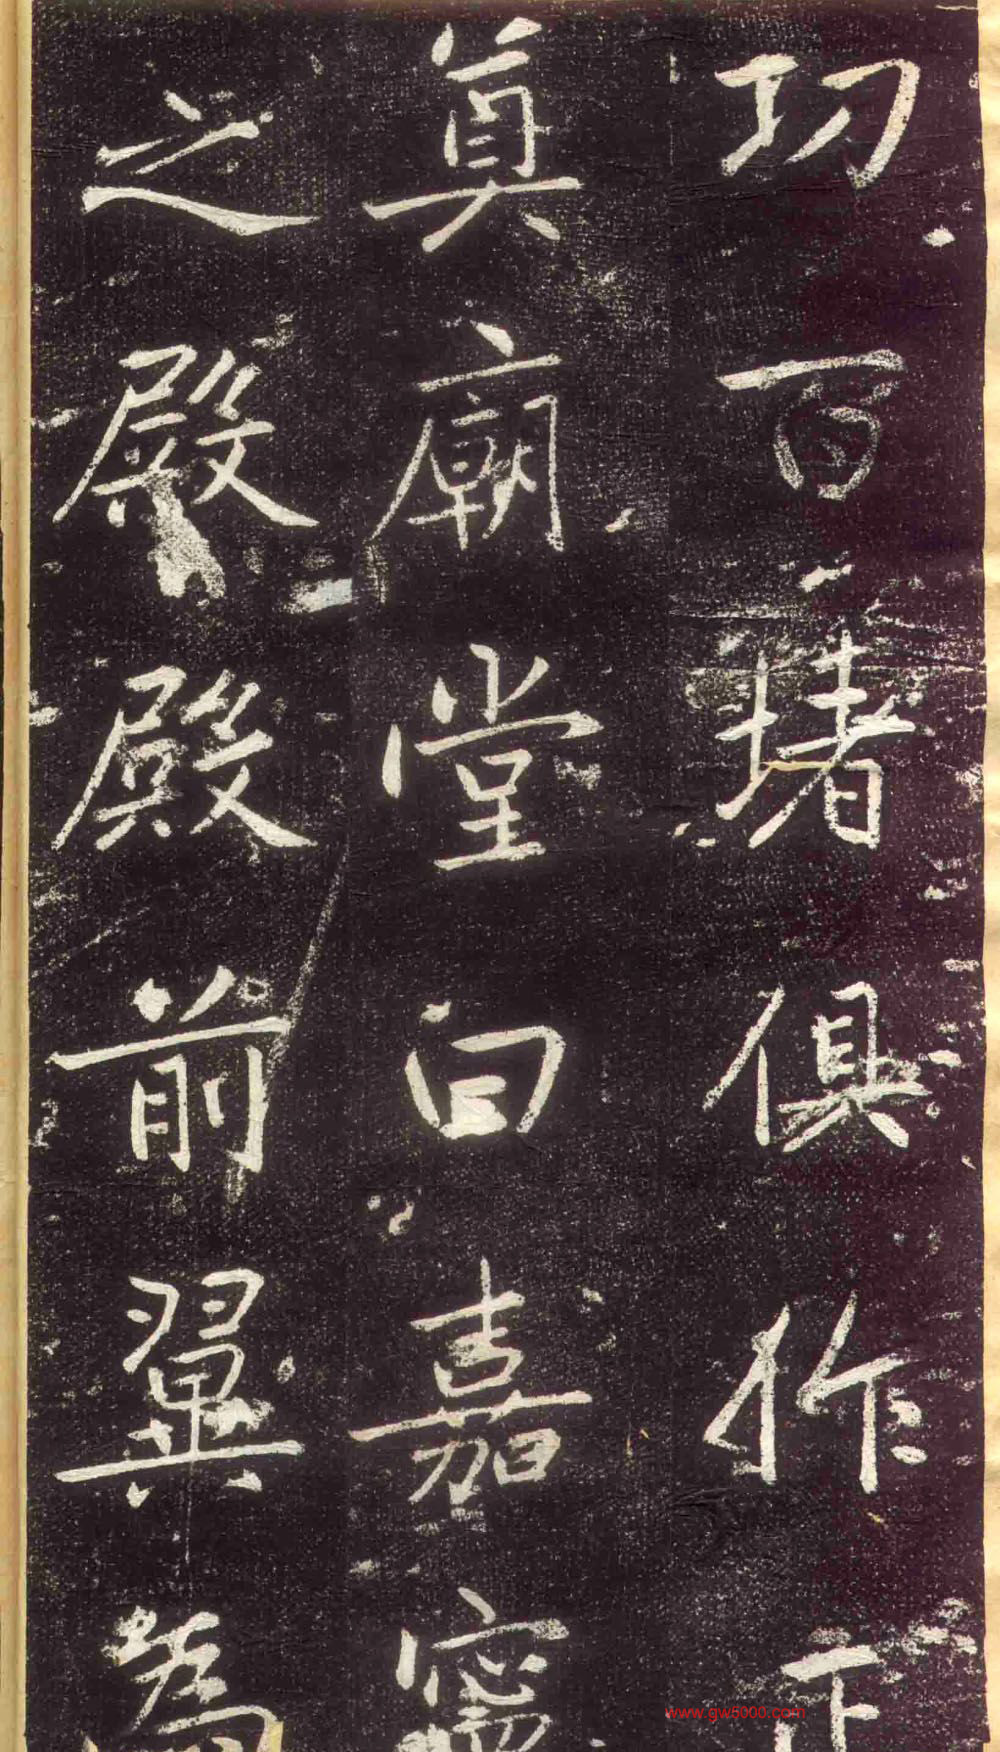 功百堵俱作下
真廟堂曰嘉寧
之殿殿前翼為
www.gw5000.com